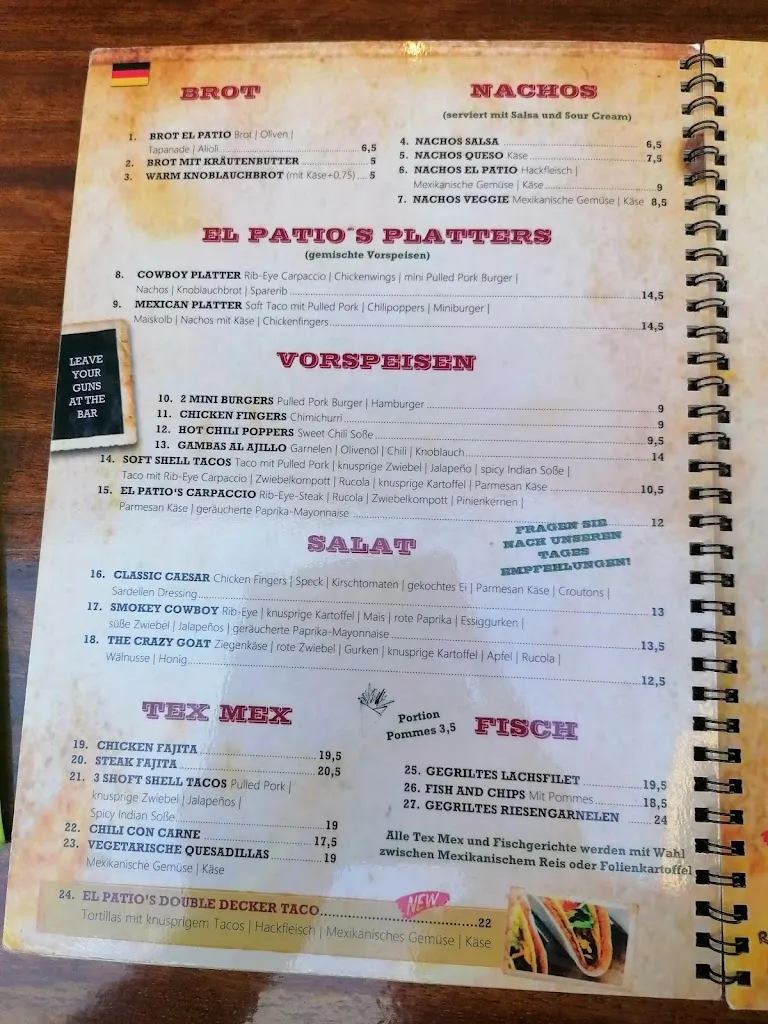 BROT
1. BROT EL PATIO Brot | Oliven |
Tapanade | Alioli 6,5
2. BROT MIT KRÄUTENBUTTER 5
3. WARM KNOBLAUCHBROT (mit Käse+0.75) 5
NACHOS
(serviert mit Salsa und Sour Cream)
4. NACHOS SALSA 6,5
5. NACHOS QUESO Käse 7,5
6. NACHOS EL PATIO Hackfleisch |
Mexikanische Gemüse | Käse 9
7. NACHOS VEGGIE Mexikanische Gemüse | Käse 8,5
EL PATIO´S PLATTERS
(gemischte Vorspeisen)
8. COWBOY PLATTER Rib-Eye Carpaccio | Chickenwings | mini Pulled Pork Burger |
Nachos | Knoblauchbrot | Sparerib 14,5
9. MEXICAN PLATTER Soft Taco mit Pulled Pork | Chilipoppers | Miniburger |
Maiskolb | Nachos mit Käse | Chickenfingers 14,5
LEAVE
YOUR
GUNS
AT THE
BAR
VORSPEISEN
10. 2 MINI BURGERS Pulled Pork Burger | Hamburger 9
11. CHICKEN FINGERS Chimichurri 9
12. HOT CHILI POPPERS Sweet Chili Soße 9,5
13. GAMBAS AL AJILLO Garnelen | Olivenöl | Chili | Knoblauch 14
14. SOFT SHELL TACOS Taco mit Pulled Pork | knusprige Zwiebel | Jalapeño | spicy Indian Soße |
Taco mit Rib-Eye Carpaccio | Zwiebelkompott | Rucola | knusprige Kartoffel | Parmesan Käse 10,5
15. EL PATIO'S CARPACCIO Rib-Eye-Steak | Rucola | Zwiebelkompott | Pinienkernen |
Parmesan Käse | geräucherte Paprika-Mayonnaise 12
FRAGEN SIE
NACH UNSEREN
TAGES
EMPFEHLUNGEN!
SALAT
16. CLASSIC CAESAR Chicken Fingers | Speck | Kirschtomaten | gekochtes Ei | Parmesan Käse | Croutons |
Sardellen Dressing 13
17. SMOKEY COWBOY Rib-Eye | knusprige Kartoffel | Mais | rote Paprika | Essiggurken |
süße Zwiebel | Jalapeños | geräucherte Paprika-Mayonnaise 13,5
18. THE CRAZY GOAT Ziegenkäse | rote Zwiebel | Gurken | knusprige Kartoffel | Apfel | Rucola |
Walnüsse | Honig 12,5
TEX MEX
19. CHICKEN FAJITA 19,5
20. STEAK FAJITA 20,5
21. 3 SHOFT SHELL TACOS Pulled Pork |
knusprige Zwiebel | Jalapeños |
Spicy Indian Soße 19
22. CHILI CON CARNE 17,5
23. VEGETARISCHE QUESADILLAS 19
Mexikanische Gemüse | Käse
Portion
Pommes 3,5
FISCH
25. GEGRILTES LACHSFILET 19,5
26. FISH AND CHIPS Mit Pommes 18,5
27. GEGRILTES RIESENGARNELEN 24
Alle Tex Mex und Fischgerichte werden mit Wahl
zwischen Mexikanischem Reis oder Folienkartoffel
24. EL PATIO'S DOUBLE DECKER TACO 22
NEW
Tortillas mit knusprigem Tacos | Hackfleisch | Mexikanisches Gemüse | Käse